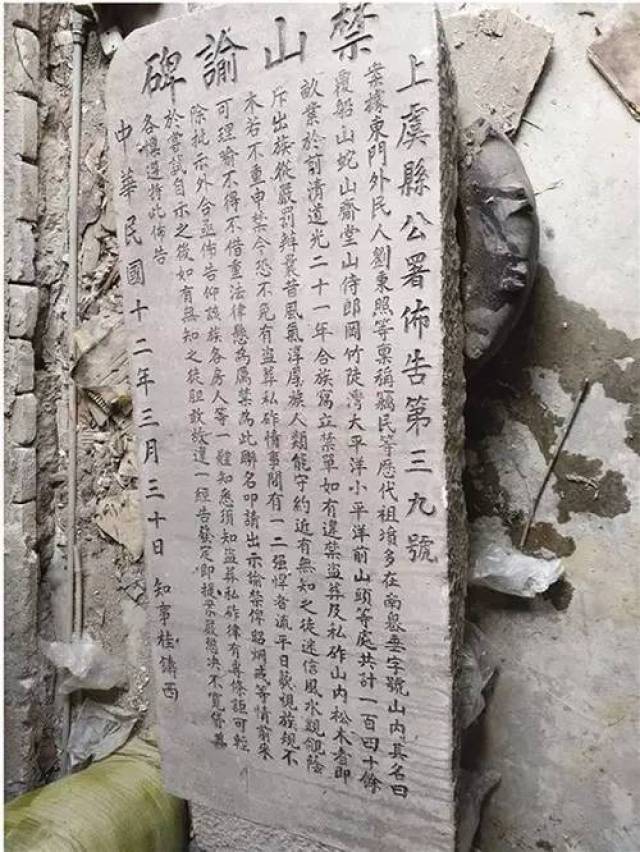 禁山諭碑
上虞縣公署佈告第三九號
案據東門外民人劉東照等稟稱竊民等歷代祖墳多在南鄉垂字號山內其名曰
覆船山蛇山齋堂山侍郎岡竹陡灣大平洋小平洋前山頭等處共計一百四十餘
畝業於前清道光二十一年合族寫立禁單如有違禁盜葬及私砟山內松木者即
斥出族從嚴罰辦曩昔風氣淳厚族人類能守約近有無知之徒迷信風水覬覦蔭
木若不重申禁令恐不死有盜葬私砟情事間有一二強悍者流平日藐視族規不
可理喻不得不借重法律懸為厲禁為此聯名叩請出示諭禁俾昭炯戒等情前來
除批示外合亟佈告仰該族各房人等一體知悉須知盜葬私砟律有專條詎可輕
於嘗試自示之後如有無知之徒胆敢故違一經告發定即提案嚴懲决不寬貸其
各懍遵特此佈告
中華民國十二年三月三十日 知事桂鑄西